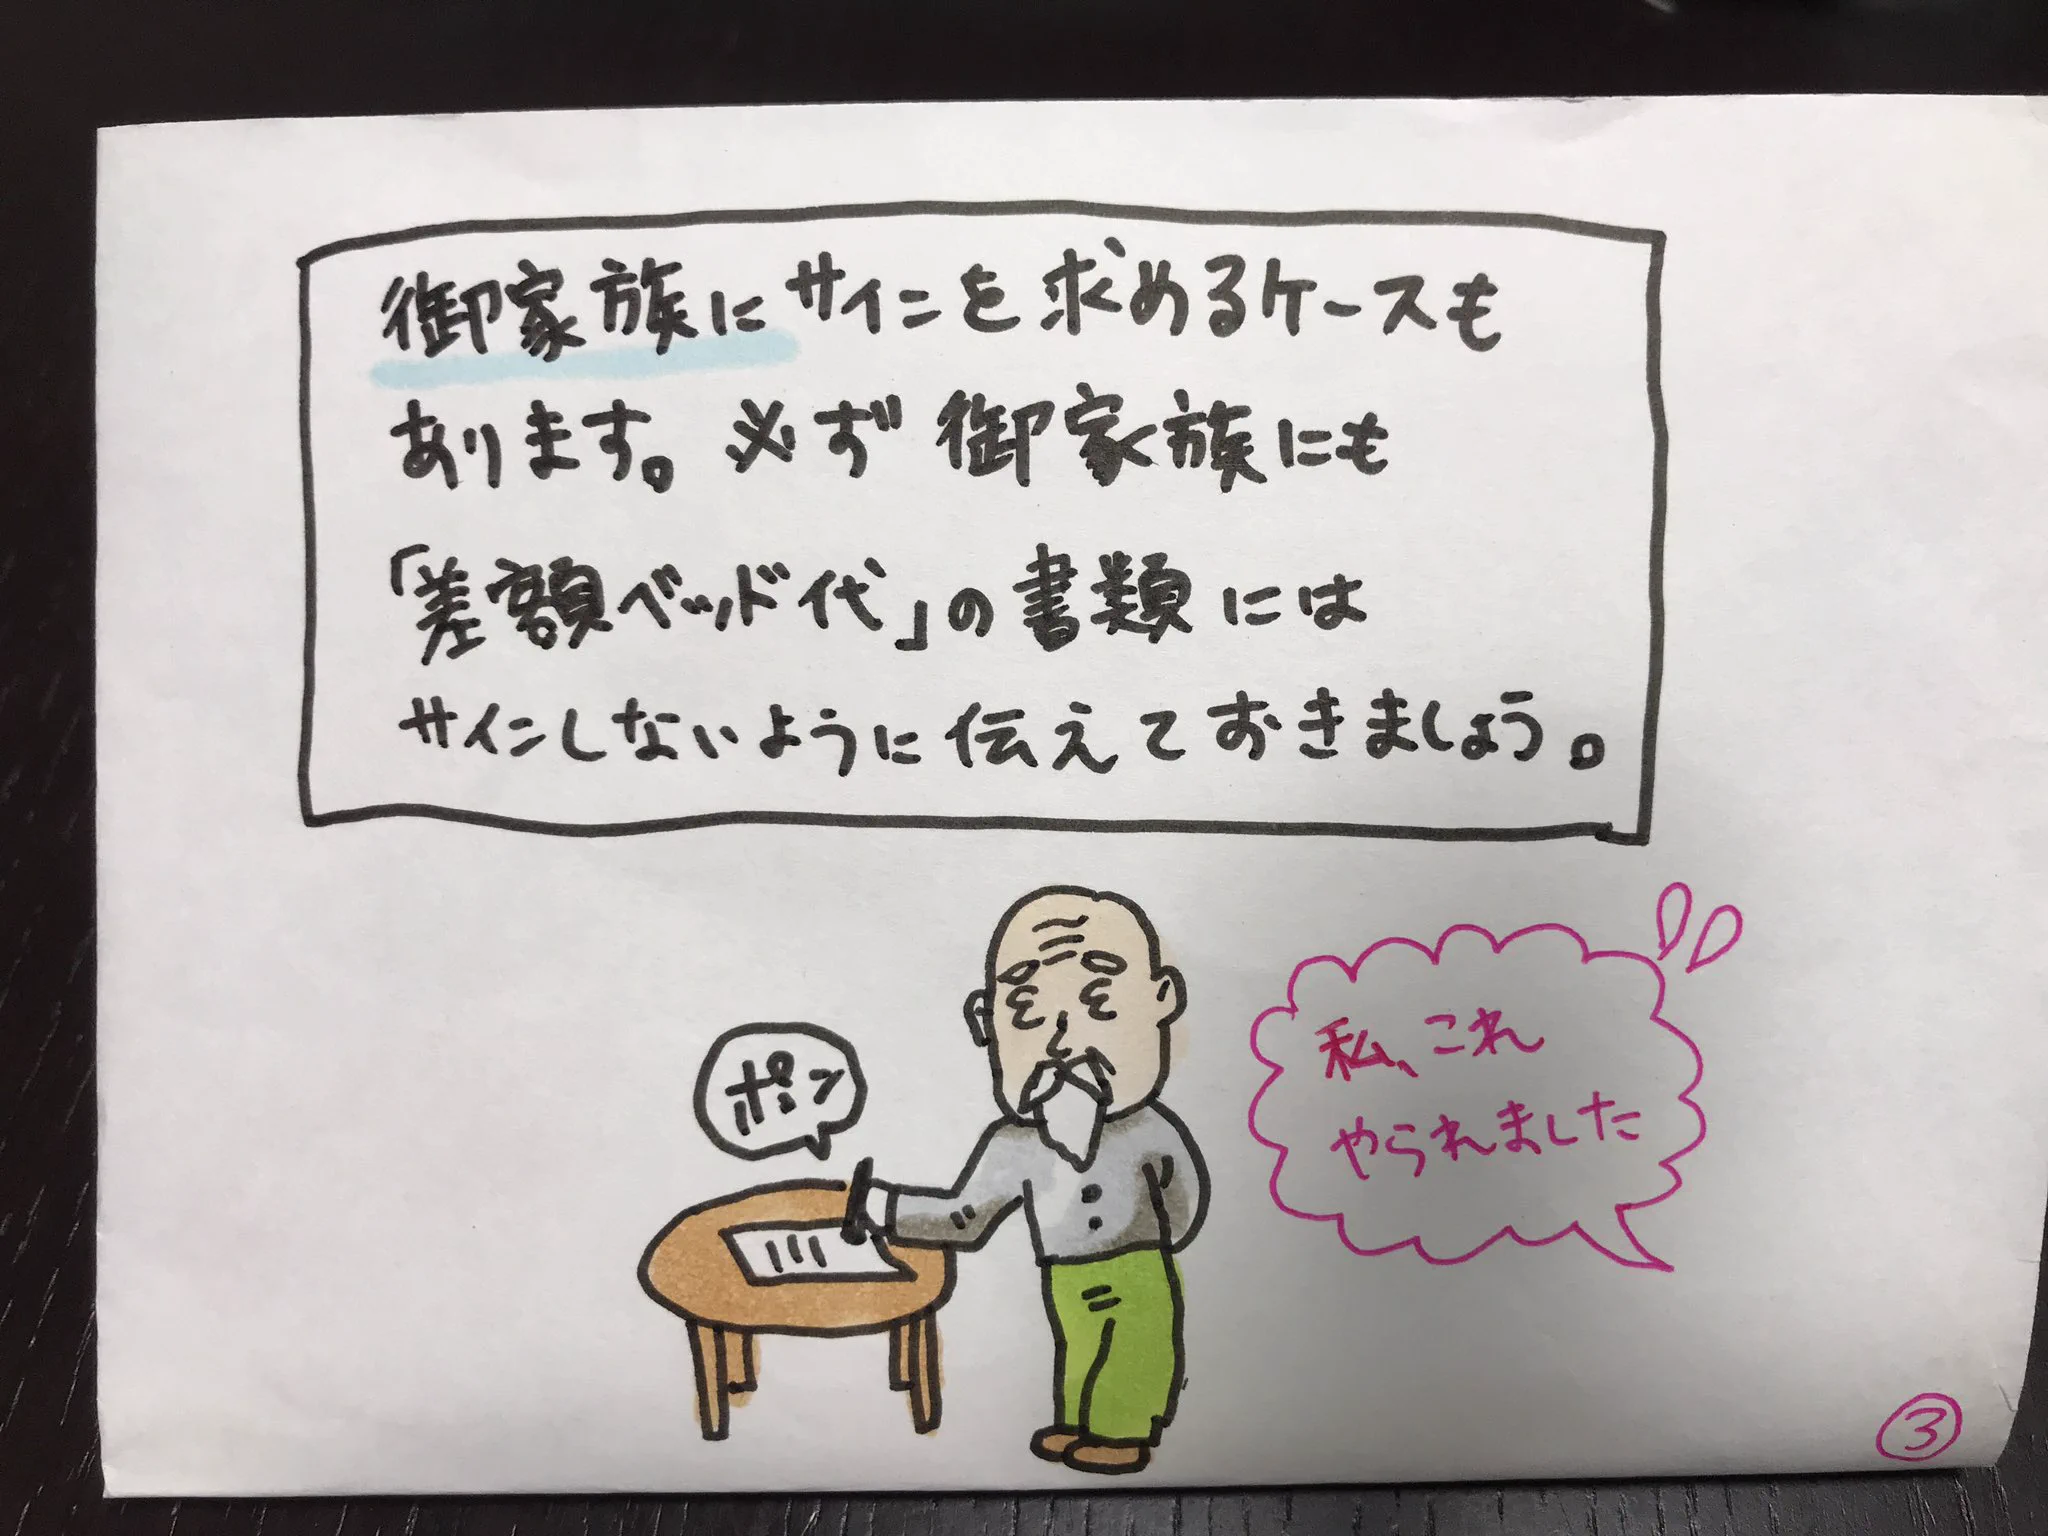 御家族にサインを求めるケースも
あります。必ず御家族にも
「差額ベッド代」の書類には
サインしないように伝えておきましょう。
ポン
私、これ
やられました
③